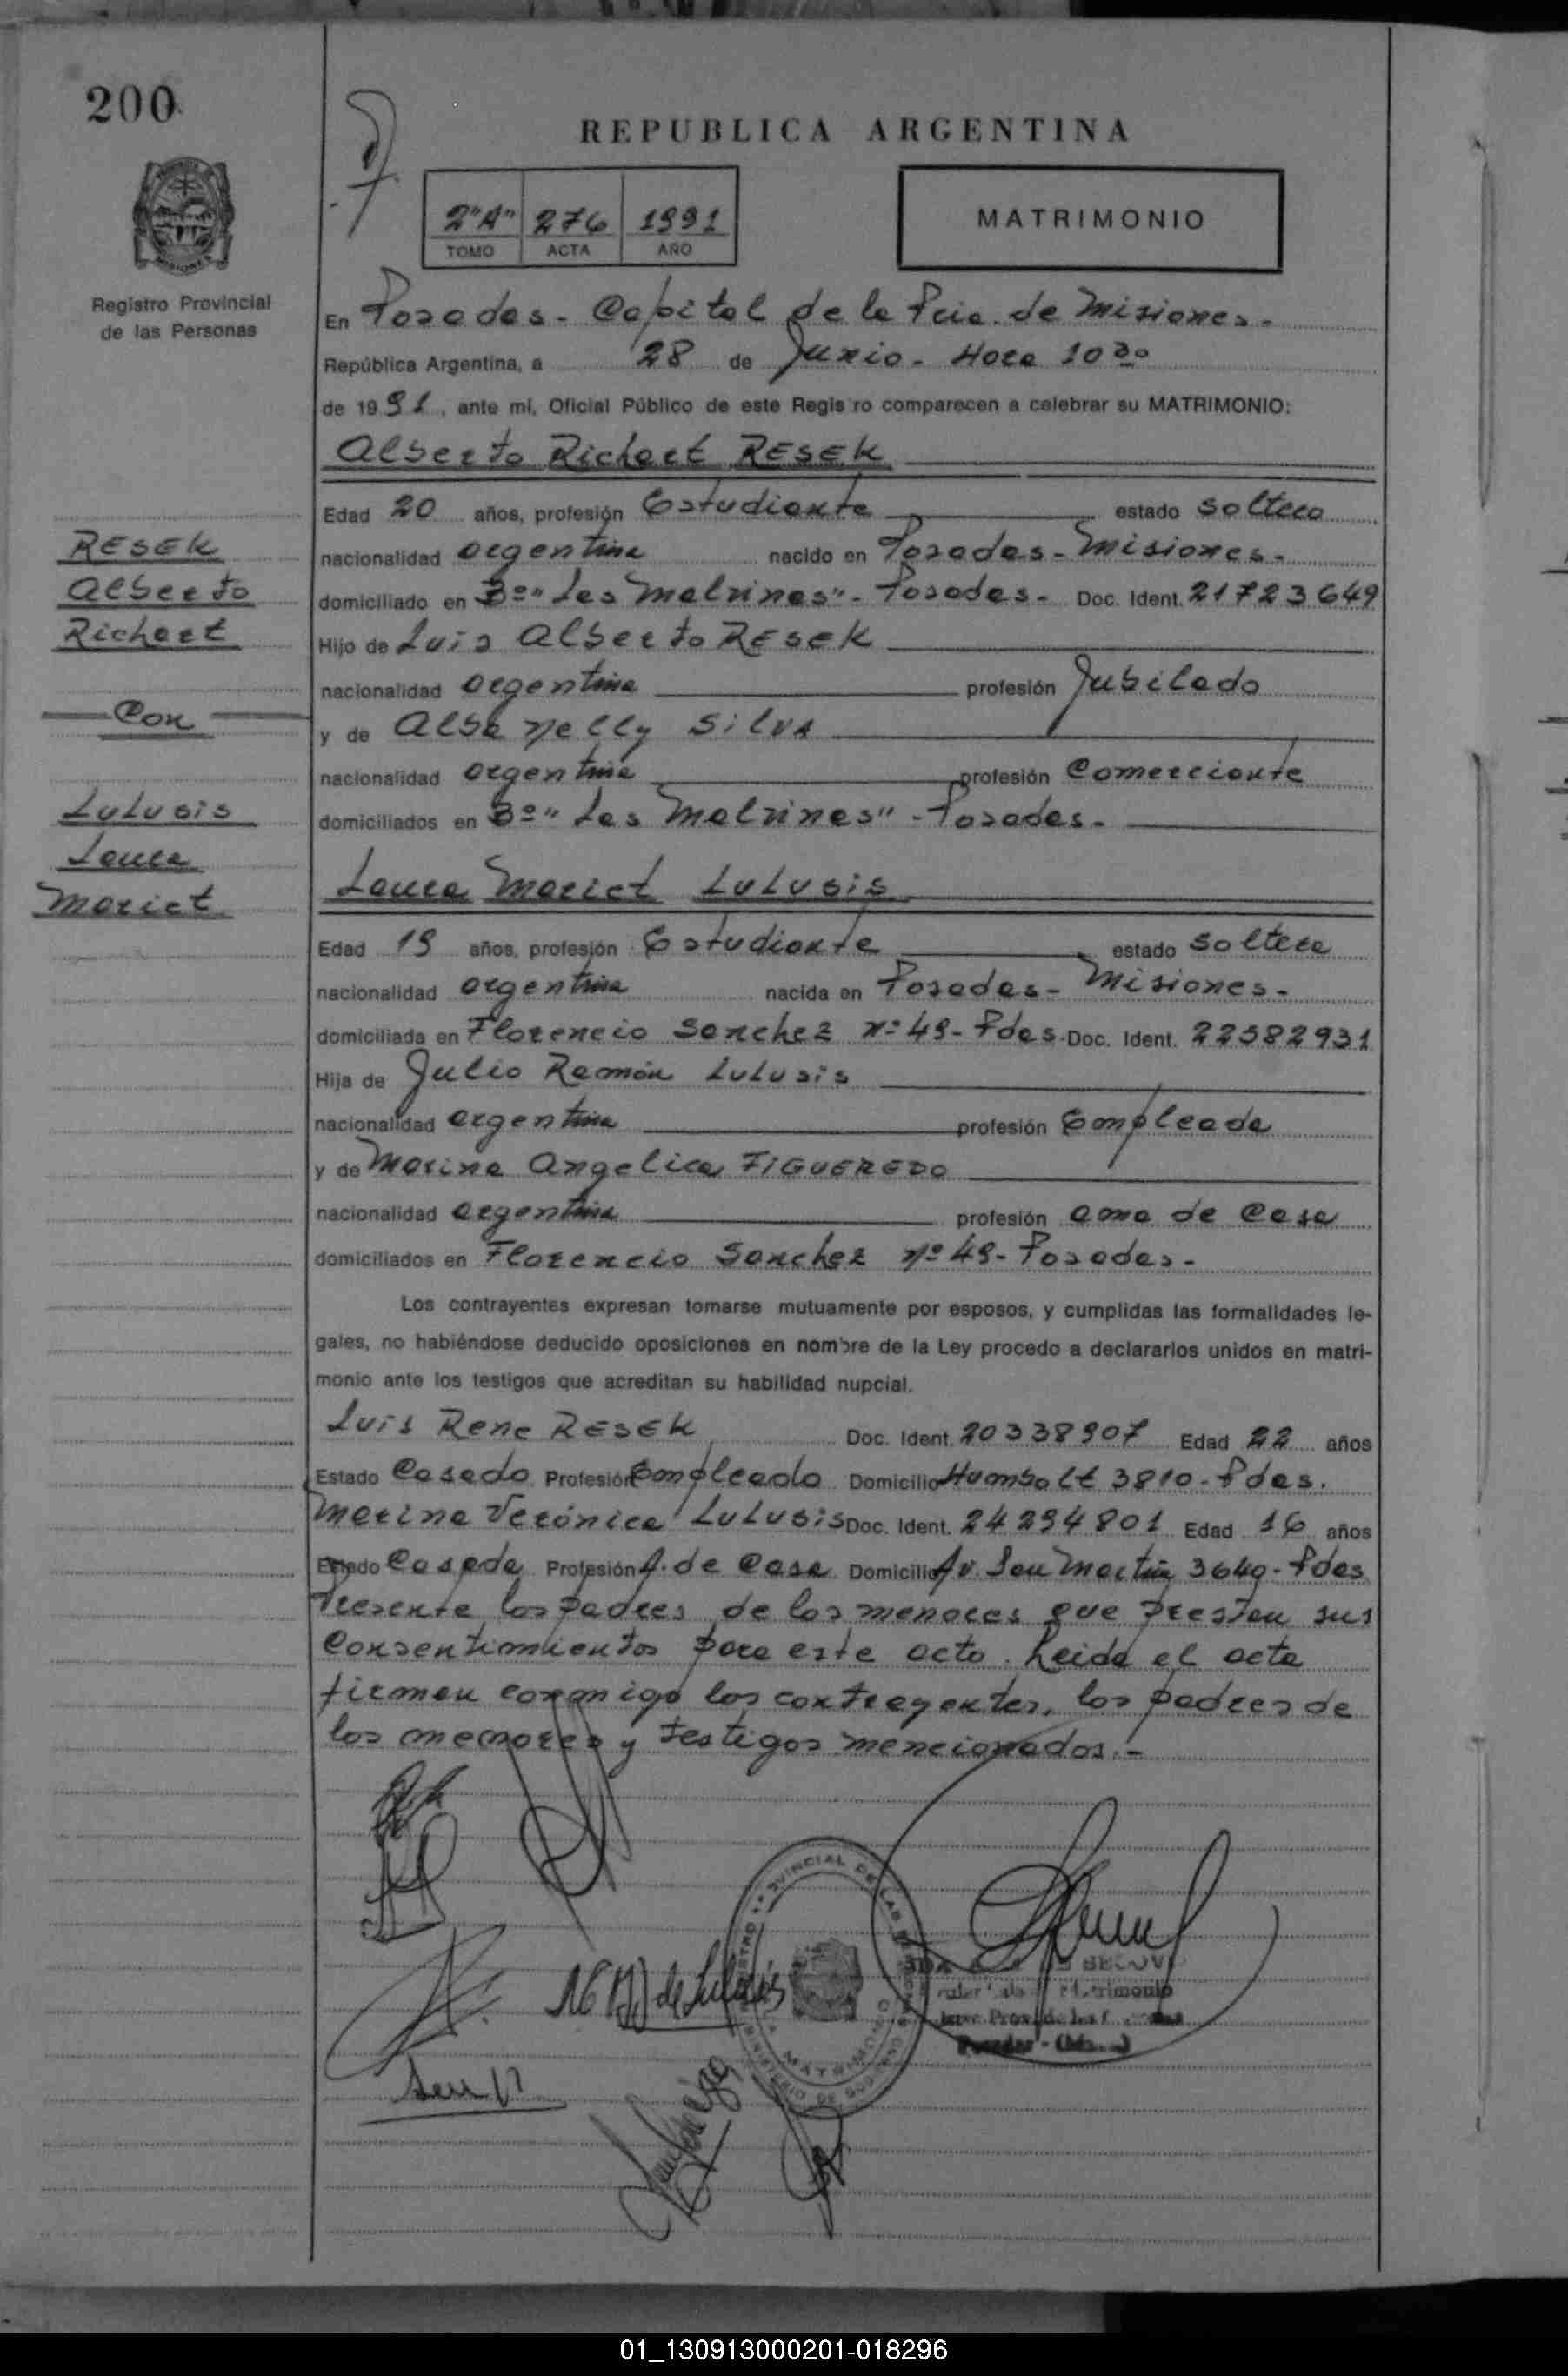 200
REPUBLICA ARGENTINA
2"A" 276 1991
TOMO ACTA AÑO
MATRIMONIO
Registro Provincial
de las Personas
En Posadas - Capital de la Pcia. de Misiones -
República Argentina, a 28 de Junio - Hora 10 30
de 1991, ante mí, Oficial Público de este Regis ro comparecen a celebrar su MATRIMONIO:
Alberto Richart RESEK
Edad 20 años, profesión Estudiante estado Soltero
RESEK
nacionalidad argentina nacido en Posadas - Misiones -
Alberto
domiciliado en Bº "Las Malvinas" - Posadas - Doc. Ident. 21723649
Richart
Hijo de Luis Alberto RESEK
nacionalidad argentina profesión Jubilado
Con
y de Alba Nelly SILVA
nacionalidad argentina profesión Comerciante
LULUSIS
domiciliados en Bº "Las Malvinas" - Posadas -
Laura
Mariet
Laura Mariet LULUSIS
Edad 19 años, profesión Estudiante estado Soltera
nacionalidad argentina nacida en Posadas - Misiones -
domiciliada en Florencio Sanchez Nº 49 - Pdas. Doc. Ident. 22582931
Hija de Julio Ramón LULUSIS
nacionalidad argentina profesión Empleado
y de Marina Angelica FIGUEREDO
nacionalidad argentina profesión ama de Casa
domiciliados en Florencio Sanchez Nº 49 - Posadas -
Los contrayentes expresan tomarse mutuamente por esposos, y cumplidas las formalidades le-
gales, no habiéndose deducido oposiciones en nombre de la Ley procedo a declararlos unidos en matri-
monio ante los testigos que acreditan su habilidad nupcial.
Luis Rene RESEK Doc. Ident. 20338907 Edad 22 años
Estado Casado Profesión Empleado Domicilio Humbolt 3810 - Pdas.
Marina Verónica LULUSIS Doc. Ident. 24294801 Edad 16 años
Estado Casada Profesión A. de Casa Domicilio Av. San Martín 3649 - Pdas
Presente los padres de los menores que prestan sus
Consentimientos para este acto. Leida el acta
firman conmigo los contrayentes, los padres de
los menores y testigos mencionados. -
de Lulusis
MATRIMONIO
01_130913000201-018296